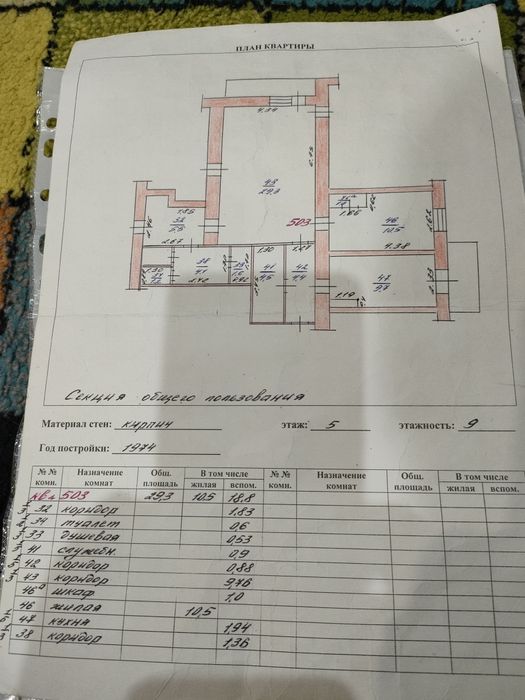 ПЛАН КВАРТИРЫ
4.34
43
29,3
503
1.85
32
5,5
2.67
46
10,5
1.66
4.38
38
4,1
1.30
1.27
41
4,5
42
4,4
47
9,7
1.19
Секция общего пользования
Материал стен: кирпич этаж: 5 этажность: 9
Год постройки: 1974
№ № комн. Назначение комнат Общ. площадь В том числе жилая вспом. № № комн. Назначение комнат Общ. площадь В том числе жилая вспом.
кв. 503 29,3 10,5 18,8
32 коридор 1,83
34 туалет 0,6
33 душевая 0,53
41 служебн. 0,9
42 коридор 0,88
43 коридор 9,76
46а шкаф 1,0
46 жилая 10,5
47 кухня 1,94
38 коридор 1,36